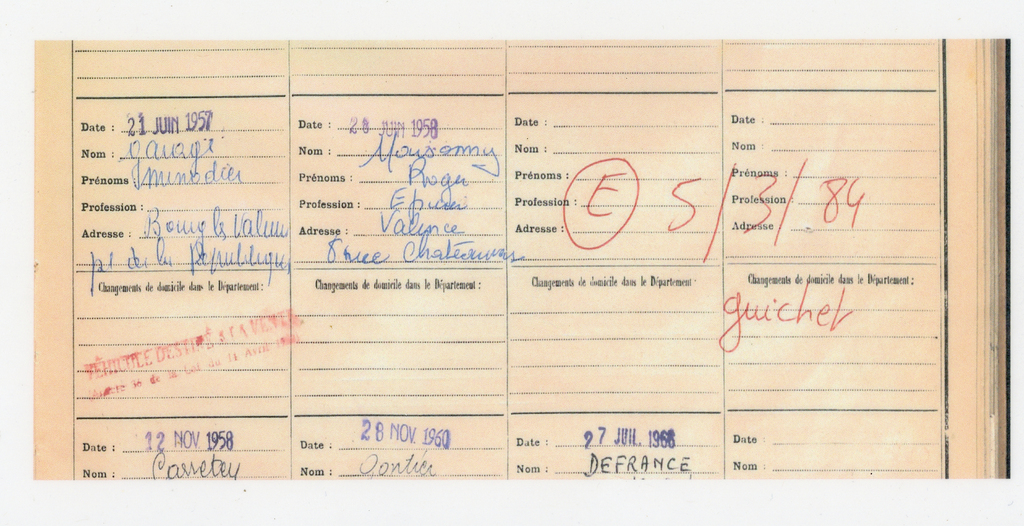 Date : 21 JUIN 1957
Nom : Garage
Prénoms : Minodier
Profession :
Adresse : Bourg les Valence
pl de la République
Changements de domicile dans le Département :
VÉHICULE DESTINÉ A LA VENTE
de la Loi du 11 Avril
Date : 28 JUIN 1958
Nom :
Prénoms : Roger
Profession :
Adresse : Valence
8 rue
Changements de domicile dans le Département :
Date :
Nom :
Prénoms :
Profession :
Adresse :
Changements de domicile dans le Département :
Date :
Nom :
Prénoms :
Profession :
Adresse
Changements de domicile dans le Département :
E 5/3/84
guichet
Date : 12 NOV 1958
Nom :
Date : 28 NOV. 1960
Nom : Gontier
Date : 27 JUIL 1966
Nom : DEFRANCE
Date :
Nom :